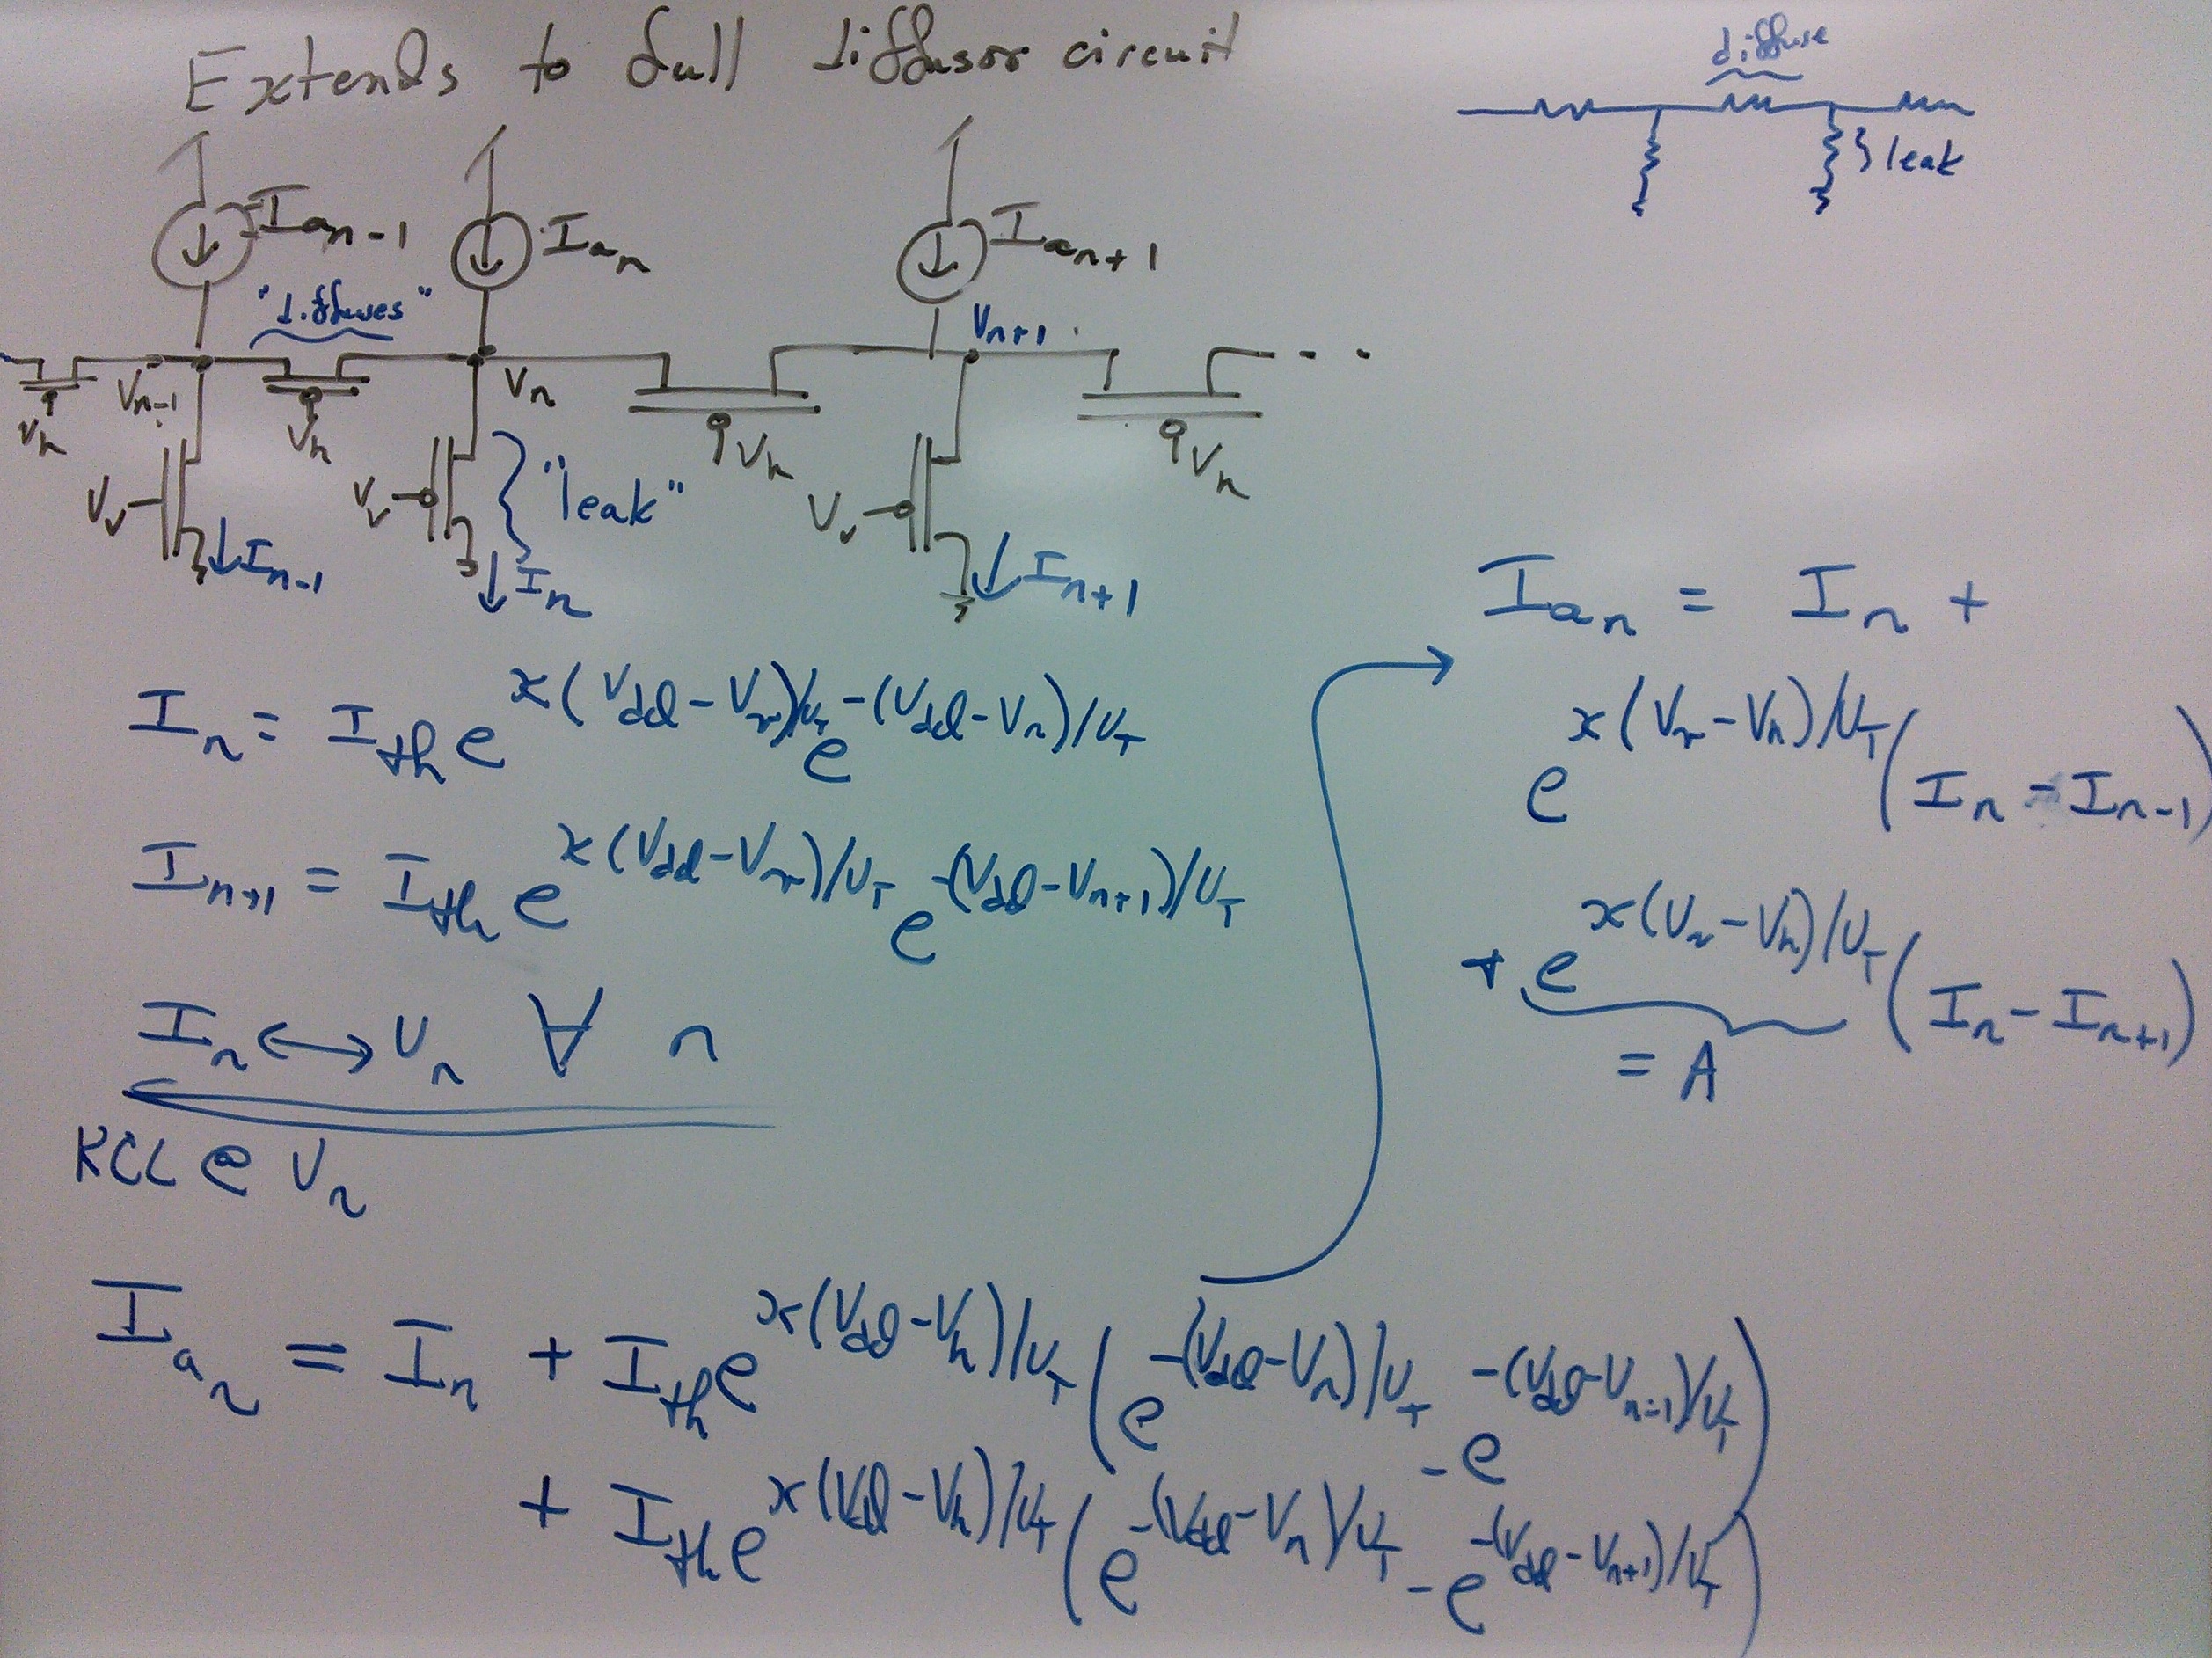 Extends to full diffusor circuit
diffuse
leak
I_{a_{n-1}} I_{a_n} I_{a_{n+1}}
"diffuses"
V_{n-1} V_n V_{n+1} . . .
V_h V_h V_h V_h
V_v V_v "leak" V_v
I_{n-1} I_n I_{n+1}
I_n = I_{th} e^{κ(V_{dd} - V_v)/U_T} e^{-(V_{dd} - V_n)/U_T}
I_{n+1} = I_{th} e^{κ(V_{dd} - V_v)/U_T} e^{-(V_{dd} - V_{n+1})/U_T}
I_n ↔ V_n ∀ n
KCL @ V_n
I_{a_n} = I_n + I_{th} e^{κ(V_{dd} - V_h)/U_T} (e^{-(V_{dd} - V_n)/U_T} - e^{-(V_{dd} - V_{n-1})/U_T})
+ I_{th} e^{κ(V_{dd} - V_h)/U_T} (e^{-(V_{dd} - V_n)/U_T} - e^{-(V_{dd} - V_{n+1})/U_T})
I_{a_n} = I_n +
e^{κ(V_v - V_h)/U_T} (I_n - I_{n-1})
+ e^{κ(V_v - V_h)/U_T} (I_n - I_{n+1})
= A